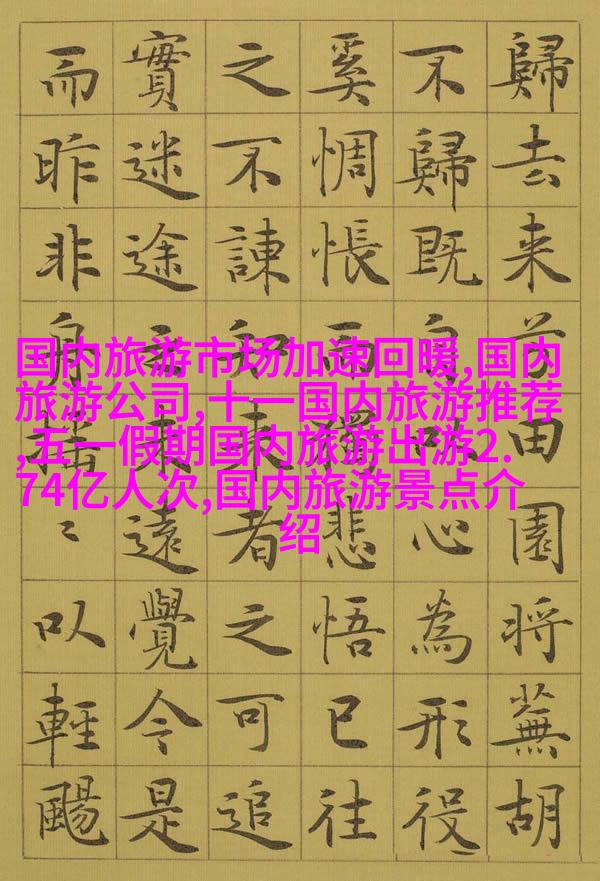 歸去来兮田園将蕪胡
不歸既自以心為形役
奚惆悵而獨悲悟已往
之不諫知来者之可追
實迷途其未遠覺今是
而昨非舟揺〻以輕颺
国内旅游市场加速回暖,国内
旅游公司,十一国内旅游推荐
,五一假期国内旅游出游2.
74亿人次,国内旅游景点介
绍